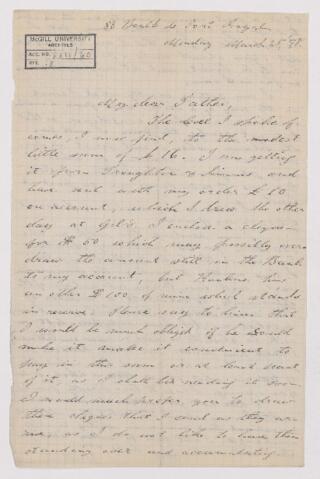 McGILL UNIVERSITY
ARCHIVES
ACC. NO.
REF.
Monday March
My dear Father,
The bill I spoke of
comes, I now find, to the modest
little sum of £16. I am getting
it from Troughton & Simms and
have sent with my order £10
on account, which I drew the other
day at Gil's. I enclose a cheque
for £ 50 which may possibly over
draw the amount still in the Bank
to my account, but has
another £100 of mine which stands
in reserve. Please say to him that
I would be much obliged if he could
make it convenient to
pay in this sum or at least part
of it, as I shall be needing it soon.
I would much prefer you to draw
these cheques that I send as they are
as I do not like to have them
standing over and accumulating